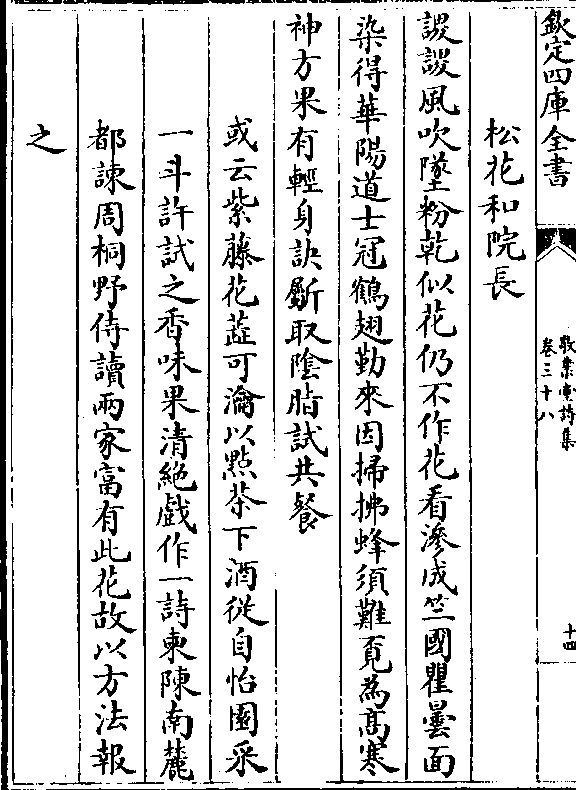 欽定四庫全書
敬業堂詩集
卷三十八
十四
松花和院長
謖謖風吹墜粉乾似花仍不作花看滲成竺國瞿曇面
染得華陽道士冠鶴翅勤來因掃拂蜂須難覓為高寒
神方果有輕身訣斸取陰脂試共餐
或云紫藤花蕋可瀹以點茶下酒從自怡園采
一斗許試之香味果清絶戲作一詩柬陳南麓
都諫周桐野侍讀兩家富有此花故以方法報
之